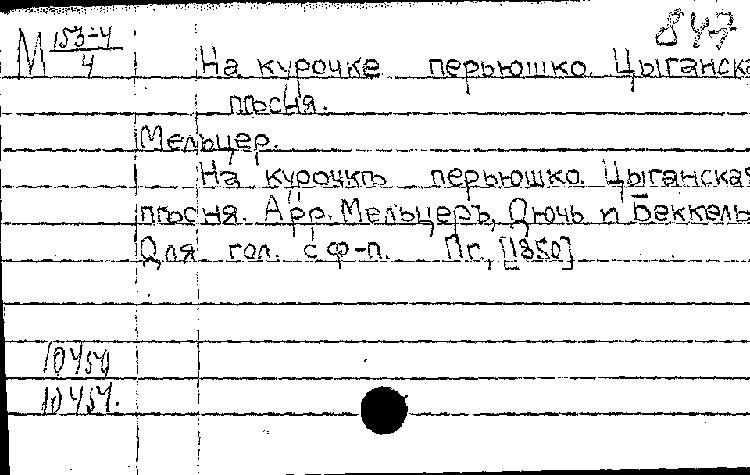 М 153-4/4
847
На курочке перьюшко. Цыганска
пѣсня.
Мельцер.
На курочкѣ перьюшко. Цыганская
пѣсня. Арр. Мельцеръ, Дючь и Беккель
Для гол. с ф-п. Пг., [1850]
10450
10451.